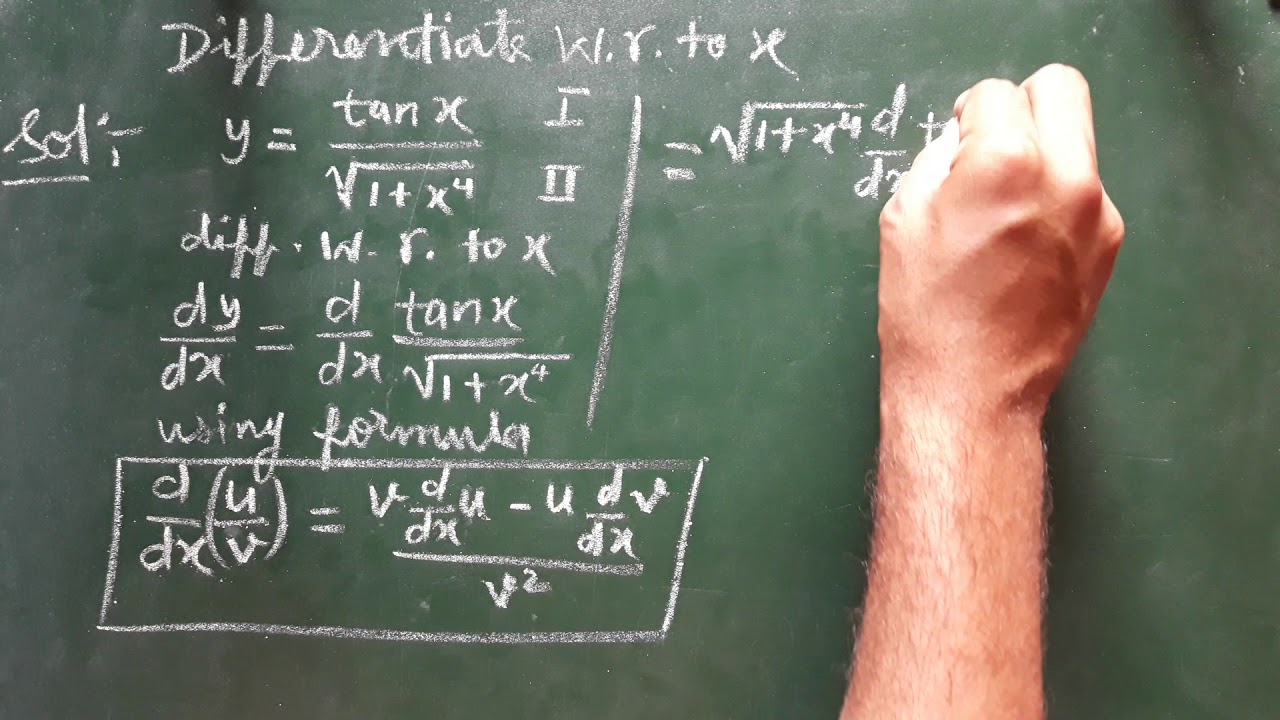 Differentiate w.r. to x
Sol:- y = tanx / √(1+x⁴) I II
diff. w.r. to x
dy/dx = d/dx tanx / √(1+x⁴)
using formula
d/dx (u/v) = (v d/dx u - u d/dx v) / v²
= √(1+x⁴) d/dx